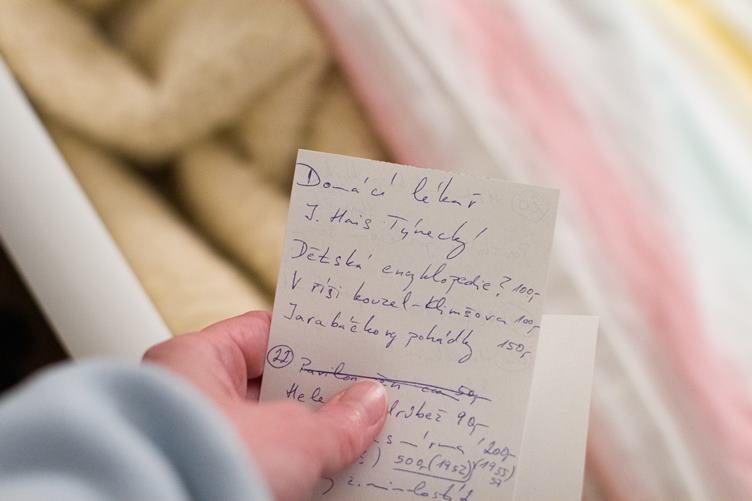 Domácí lékař
J. Hais Týnecký
Dětská encyklopedie? 100,-
V říši kouzel - Klimšova 100,-
Jarabáčkovy pohádky 150,-
(22) Pavilon 50,-
Hele drůbež 90,-
200,-
500,- (1952) (1955)